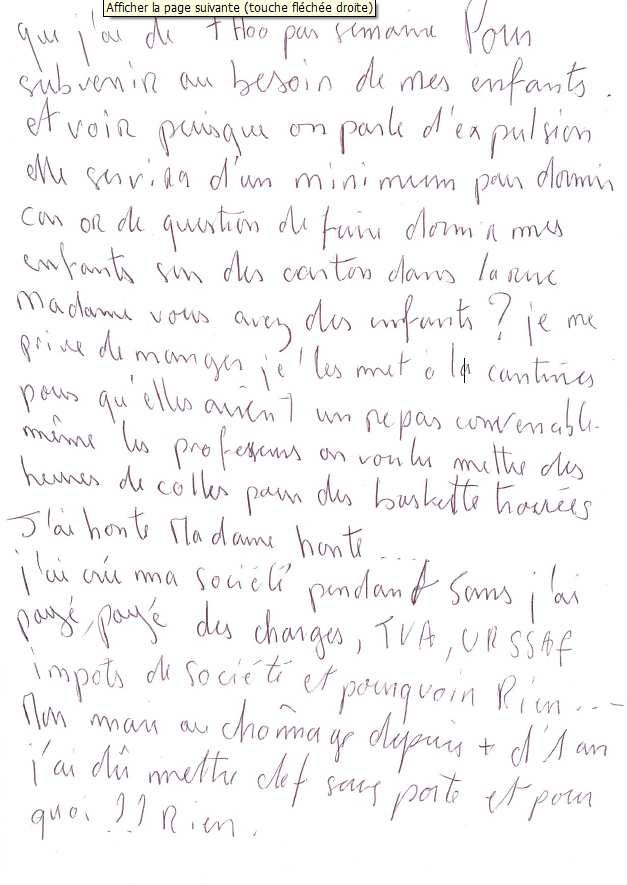 Afficher la page suivante (touche fléchée droite)
qui j'ai de + Hoo par semaine Pour
subvenir au besoin de mes enfants.
et voir puisque on parle d'expulsion
elle servira d'un minimum pour dormir
car or de question de faire dormir mes
enfants sur des carton dans la rue
Madame vous avez des enfants ? je me
prive de manger je les met à la cantines
pour qu'elles aient un repas convenable.
même les professeurs on voulu mettre des
heures de colles pour des baskette trouées
J'ai honte Madame honte ....
j'ai créé ma société pendant 5ans j'ai
payé, payé des charges, TVA, URSSAF
impots de société et pourquoi Rien...--
Mon mari au chômage depuis + d'1 an
j'ai dû mettre clef sous porte et pour
quoi ?? Rien.